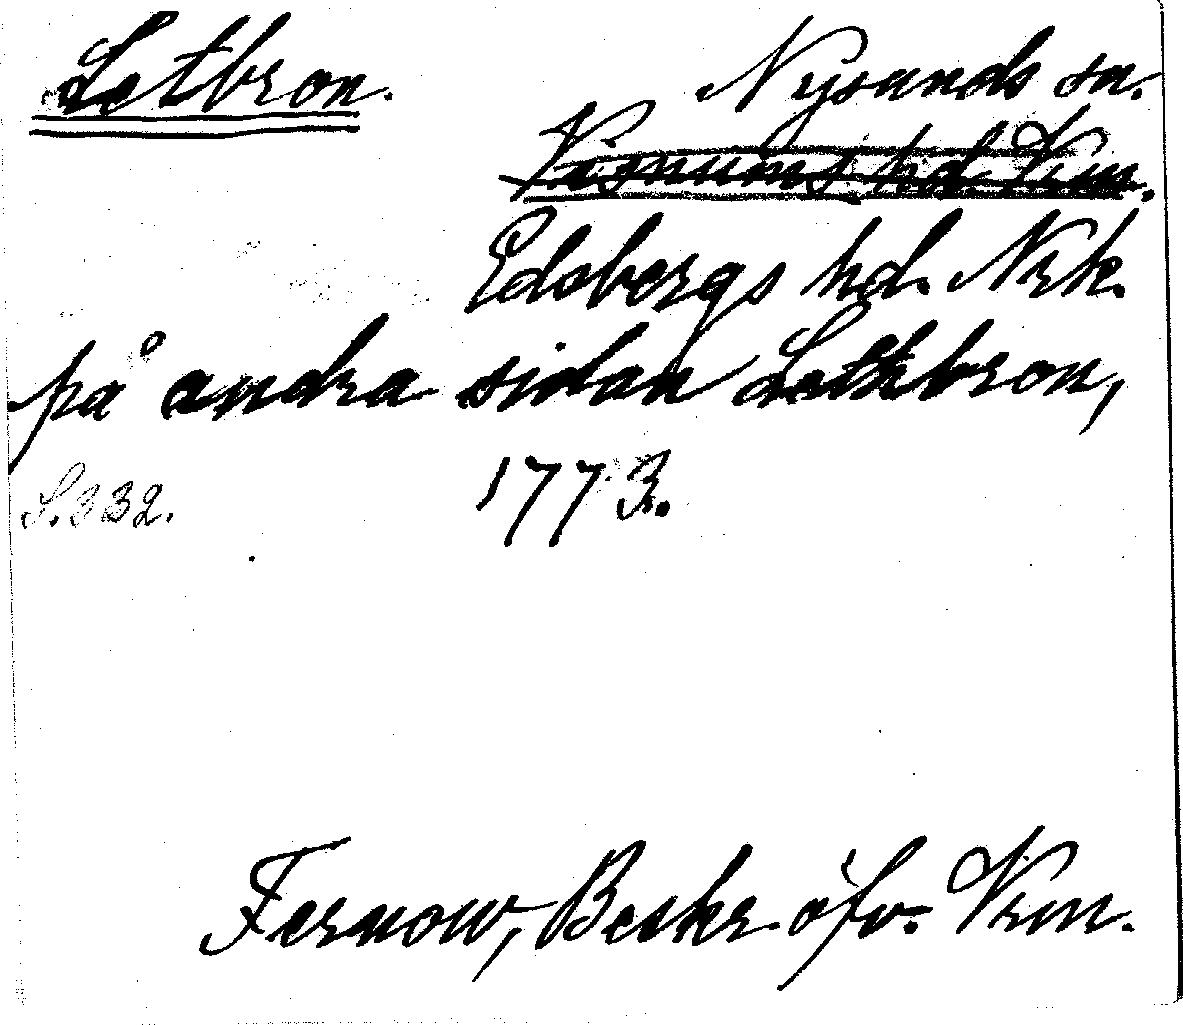 Letbron.
Nysunds sn.
Visnums hd. Vrm.
Edsbergs hd. Nrk.
på andra sidan Lethbron,
S. 332.
1773.
Fernow, Beskr. öfv. Vrm.